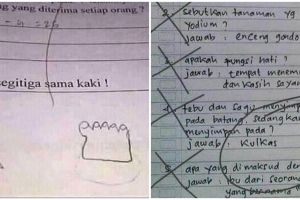 g yang diterima setiap orang?
segitiga sama kaki !
2. sebutkan tanaman yg
yodium?
jawab: enceng gondo
3. apakah fungsi hati?
jawab: tempat menem
dan kasih saya
4. tebu dan sagu menyimp
pada batang, sedangka
menyimpan pada?
jawab: kulkas
5. apa yang di maksud de
jawab: ibu dari seoran
yang bernama